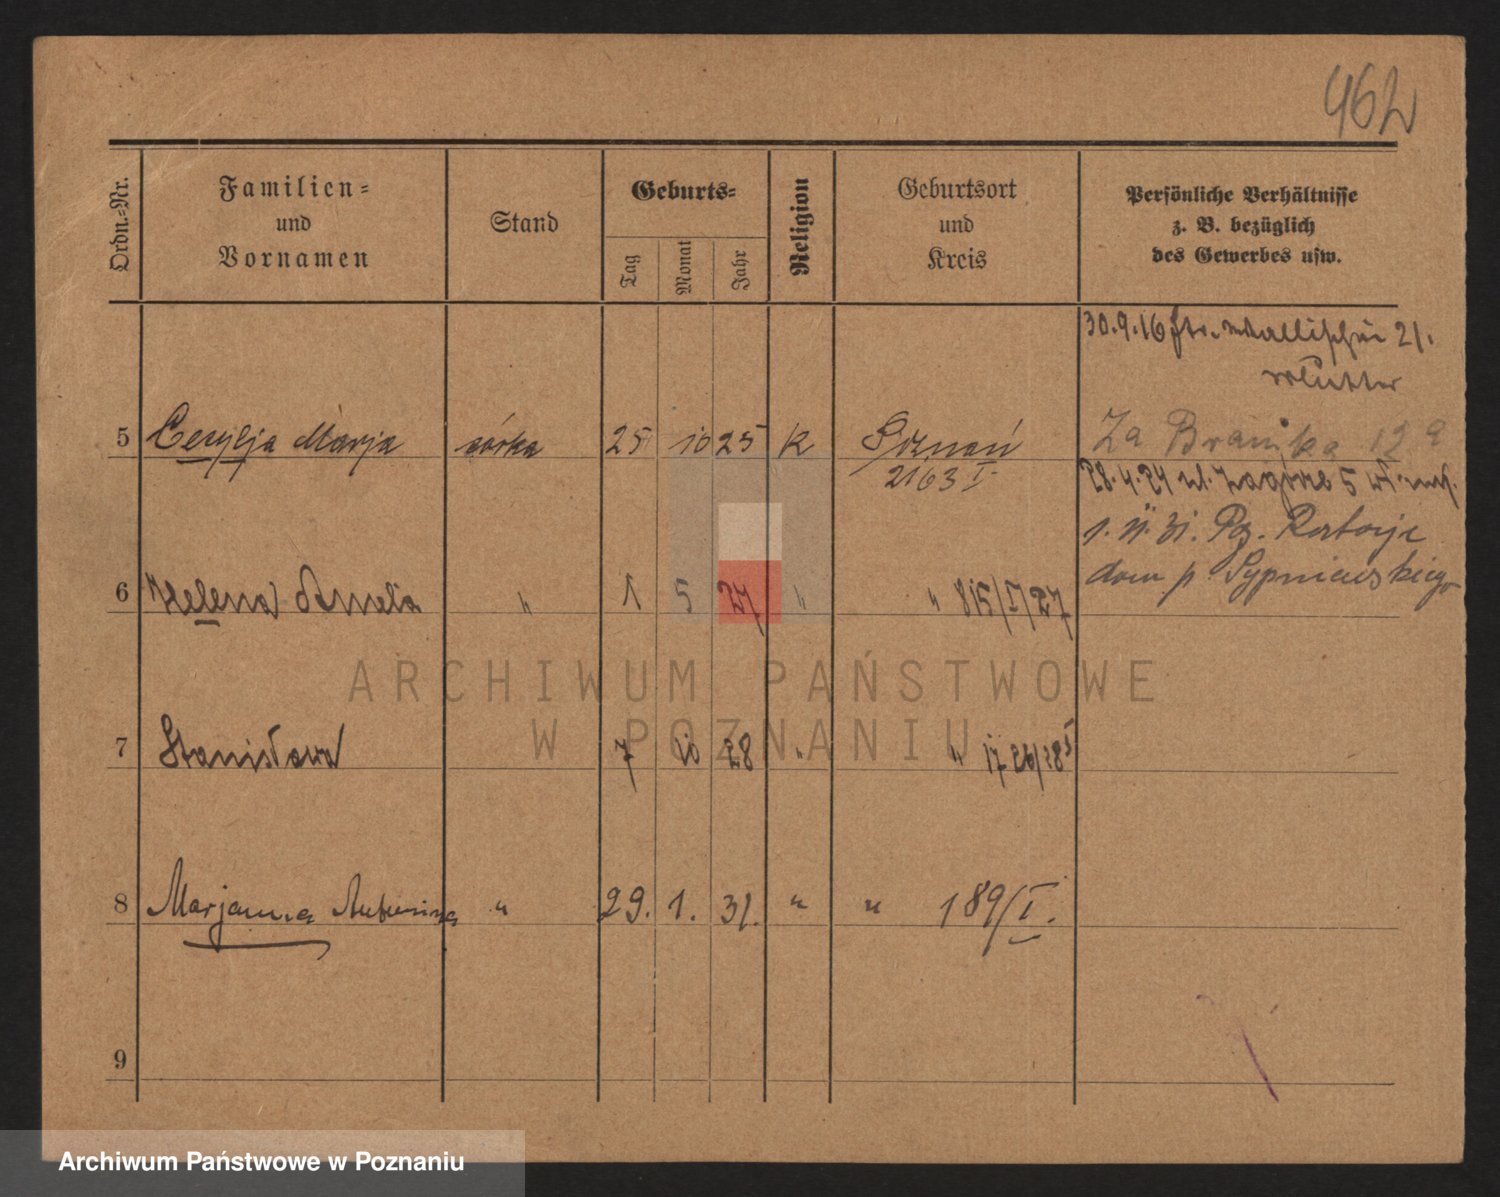 462
Ordn.-Nr.
Familien-
und
Vornamen
Stand
Geburts-
Tag
Monat
Jahr
Religion
Geburtsort
und
Kreis
Persönliche Verhältnisse
z. B. bezüglich
des Gewerbes usw.
30.9.16 Wallischei 21.
Mutter
5 Cecylja Marja córka 25 10 25 K Poznań
2163 I
Za Bramką 12a
28.4.24 ul. Zagórze 5
1. 11. 31. Pozn. Rataje
dom p. Sypniewskiego
6 Helena Amelia " 1 5 27 " " 815/I/27
7 Stanisława 7 10 28 " " 1726/28 I
8 Marjanna Antonina " 29. 1. 31. " " 189/I.
9
ARCHIWUM PAŃSTWOWE
W POZNANIU
Archiwum Państwowe w Poznaniu